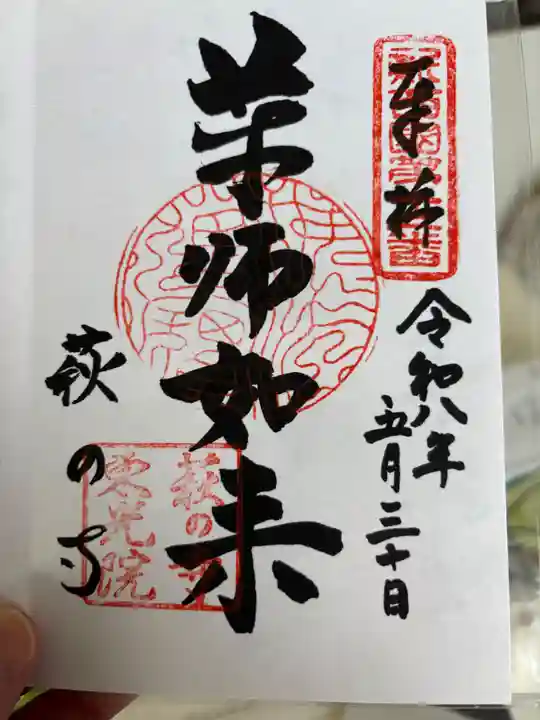 奉拝
令和八年
五月三十日
薬师如来
萩の寺
萩の寺
東光院